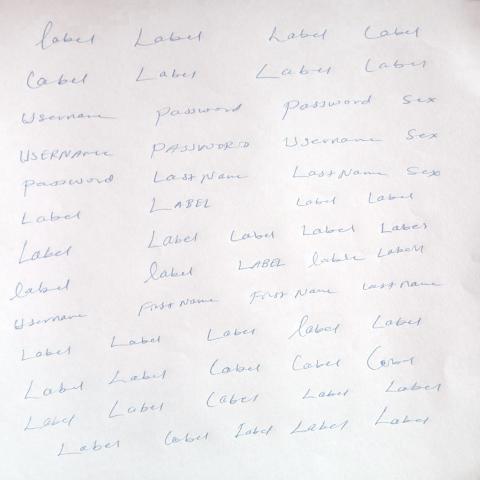 label Label Label Label
Label Label Label Label
Username password password Sex
USERNAMe PASSWORD Username Sex
password Last Name Last Name Sex
Label LABEL Label Label
Label Label Label Label Label
label label LABEL lable Label
Username First Name First Name Last name
Label Label Label label Label
Label Label Label Label Label
Label Label Label Label Label
Label Label Label Label Label